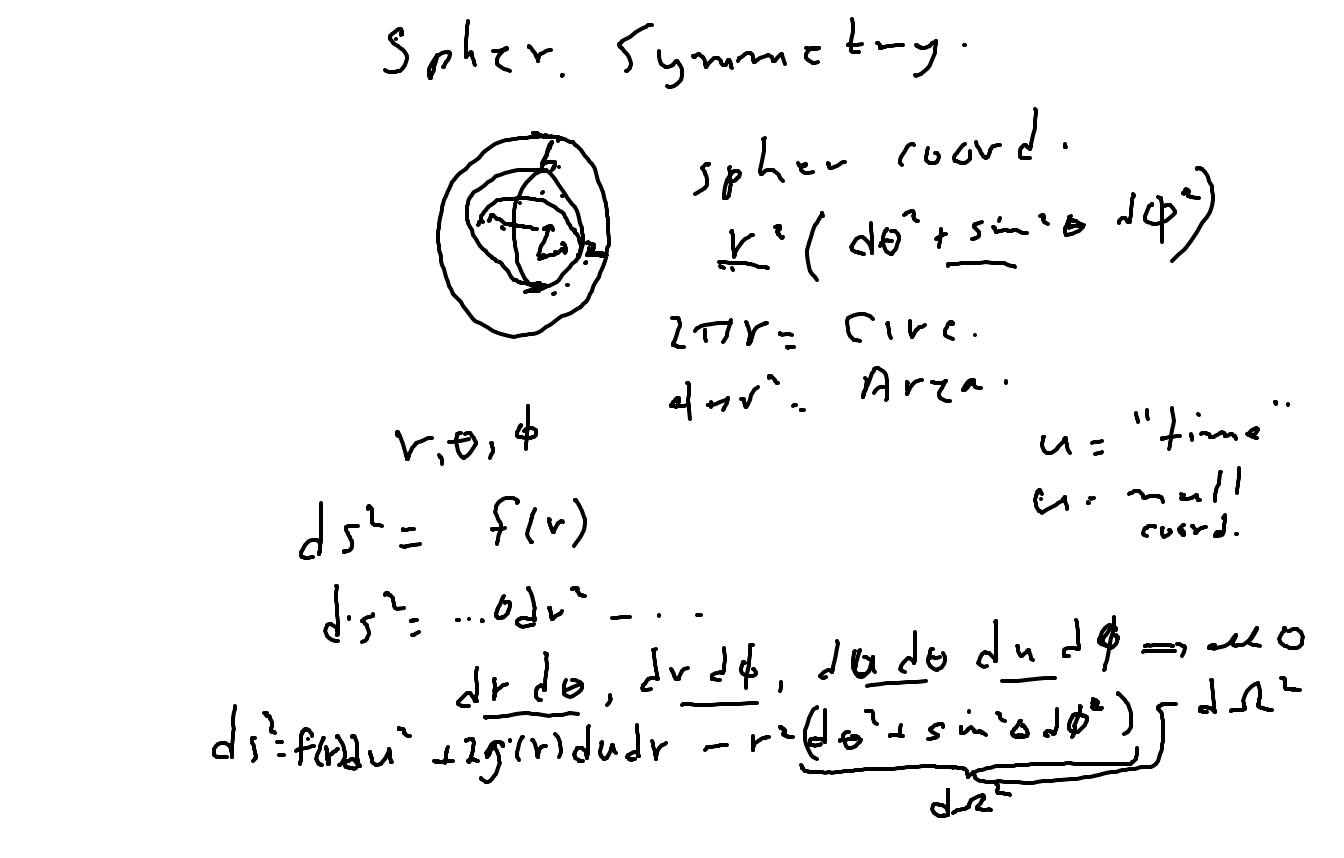 Spher. Symmetry.
spher coord.
r² ( dθ² + sin²θ dϕ²)
2πr = Circ.
4πr² = Area.
r, θ, ϕ
u = "time"
u = null
coord.
ds² = f(r)
ds² = ...0dr² - ...
dr dθ, dr dϕ, du dθ du dϕ ⇒ all 0
ds² = f(r)du² + 2g(r)dudr - r²(dθ² + sin²θ dϕ²) dΩ²
dΩ²